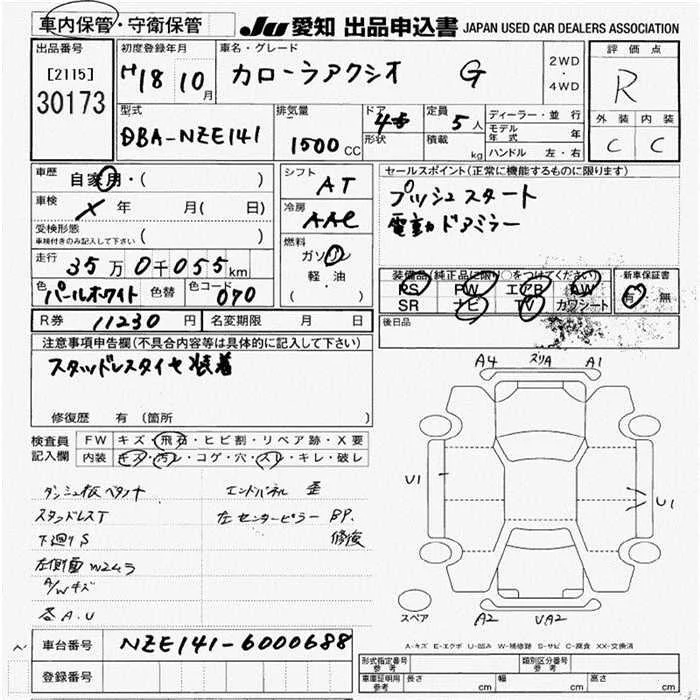 車内保管・守衛保管
JU 愛知 出品申込書 JAPAN USED CAR DEALERS ASSOCIATION
出品番号
[2115]
30173
初度登録年月
H18 10月
車名・グレード
カローラアクシオ G
2WD
・
4WD
評価点
R
外装 内装
C C
型式
DBA-NZE141
排気量
1500CC
ドア
形状
定員
5人
積載
kg
ディーラー・並行
モデル年式 年
ハンドル 左・右
車歴
自家用・( )
車検
X 年 月( 日)
受検形態
車検付きのみ記入して下さい ( )
走行
35万0千055km
色
パールホワイト
色替
色コード
070
シフト
AT
冷房
AAC
燃料
ガソリン
軽・油
( )
セールスポイント(正常に機能するものに限ります)
プッシュスタート
電動ドアミラー
装備品(純正品に限り○をつけてください)
PS PW エアB AW
SR ナビ TV カワシート
新車保証書
有 無
後日品
R券 11230円
名変期限 月 日
注意事項申告欄(不具合内容等は具体的に記入して下さい)
スタッドレスタイヤ装着
修復歴 有 (箇所
検査員
記入欄
FW キズ・飛石・ヒビ割・リペア跡・X要
内装 キズ・汚レ・コゲ・穴・スレ・キレ・破レ
ダッシュ板ベタ付
スタッドレスT
下廻りS
左側面W24ラ
A/Wキズ
各A.U
エンドパネル 歪
左センターピラー BP.
修復
A4 スリA A1
U1
U1
A2 UA2
スペア
A-キズ E-エクボ U-凹み W-補修跡 S-サビ C-腐食 XX-交換済
車台番号
NZE141-6000688
登録番号
形式指定番号
参考
類別区分番号
参考
車庫証明用
参考
長さ cm 幅 cm 高さ cm